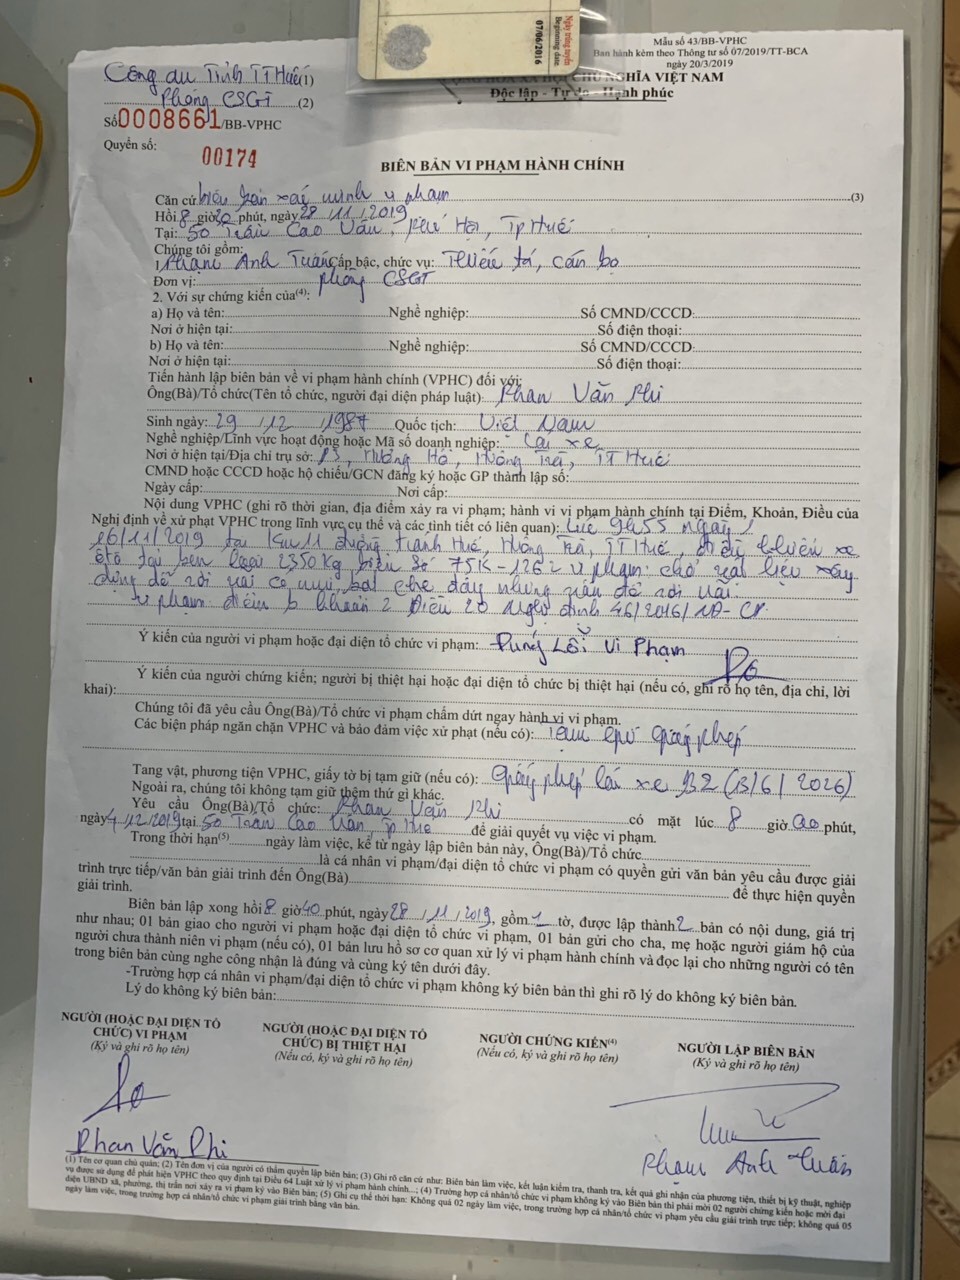 Ngày trúng tuyển
Beginning date
07/06/2016
Mẫu số 43/BB-VPHC
Ban hành kèm theo Thông tư số 07/2019/TT-BCA
ngày 20/3/2019
Công an Tỉnh TT Huế(1)
Phòng CSGT(2)
HÒA XÃ HỘI CHỦ NGHĨA VIỆT NAM
Độc lập - Tự do - Hạnh phúc
Số 0008661/BB-VPHC
Quyển số: 00174
BIÊN BẢN VI PHẠM HÀNH CHÍNH
Căn cứ biên bản xác minh vi phạm (3)
Hồi 8 giờ 30 phút, ngày 28/11/2019
Tại: 50 Trần Cao Vân, Phú Hội, Tp Huế
Chúng tôi gồm:
1. Phạm Anh Tuấn Cấp bậc, chức vụ: Thiếu tá, cán bộ
Đơn vị: phòng CSGT
2. Với sự chứng kiến của(4):
a) Họ và tên: Nghề nghiệp: Số CMND/CCCD:
Nơi ở hiện tại: Số điện thoại:
b) Họ và tên: Nghề nghiệp: Số CMND/CCCD:
Nơi ở hiện tại: Số điện thoại:
Tiến hành lập biên bản về vi phạm hành chính (VPHC) đối với:
Ông(Bà)/Tổ chức(Tên tổ chức, người đại diện pháp luật): Phan Văn Phi
Sinh ngày: 29/12/1987 Quốc tịch: Việt Nam
Nghề nghiệp/Lĩnh vực hoạt động hoặc Mã số doanh nghiệp: Lái xe
Nơi ở hiện tại/Địa chỉ trụ sở: Hương Hồ, Hương Trà, TT Huế
CMND hoặc CCCD hoặc hộ chiếu/GCN đăng ký hoặc GP thành lập số:
Ngày cấp: Nơi cấp:
Nội dung VPHC (ghi rõ thời gian, địa điểm xảy ra vi phạm; hành vi vi phạm hành chính tại Điểm, Khoản, Điều của
Nghị định về xử phạt VPHC trong lĩnh vực cụ thể và các tình tiết có liên quan): Lúc 9h55 ngày
26/11/2019 tại Km11 đường tránh Huế, Hương Trà, TT Huế, điều khiển xe
ôtô tải ben loại 2350kg biển số 75K-1262 vi phạm: chở vật liệu xây
dựng để rơi vãi có mui, bạt che đậy nhưng vẫn để rơi vãi.
Vi phạm điểm b khoản 2 Điều 20 Nghị định 46/2016/NĐ-CP
Ý kiến của người vi phạm hoặc đại diện tổ chức vi phạm: Đúng Lỗi Vi Phạm
Ý kiến của người chứng kiến; người bị thiệt hại hoặc đại diện tổ chức bị thiệt hại (nếu có, ghi rõ họ tên, địa chỉ, lời
khai):
Chúng tôi đã yêu cầu Ông(Bà)/Tổ chức vi phạm chấm dứt ngay hành vi vi phạm.
Các biện pháp ngăn chặn VPHC và bảo đảm việc xử phạt (nếu có): Tạm giữ giấy phép
Tang vật, phương tiện VPHC, giấy tờ bị tạm giữ (nếu có): Giấy phép lái xe B2 (13/6/2026)
Ngoài ra, chúng tôi không tạm giữ thêm thứ gì khác.
Yêu cầu Ông(Bà)/Tổ chức: Phan Văn Phi có mặt lúc 8 giờ 00 phút,
ngày 4/12/2019 tại 50 Trần Cao Vân, Tp Huế để giải quyết vụ việc vi phạm.
Trong thời hạn(5) ngày làm việc, kể từ ngày lập biên bản này, Ông(Bà)/Tổ chức
là cá nhân vi phạm/đại diện tổ chức vi phạm có quyền gửi văn bản yêu cầu được giải
trình trực tiếp/văn bản giải trình đến Ông(Bà) để thực hiện quyền
giải trình.
Biên bản lập xong hồi 8 giờ 40 phút, ngày 28/11/2019, gồm 1 tờ, được lập thành 2 bản có nội dung, giá trị
như nhau; 01 bản giao cho người vi phạm hoặc đại diện tổ chức vi phạm, 01 bản gửi cho cha, mẹ hoặc người giám hộ của
người chưa thành niên vi phạm (nếu có), 01 bản lưu hồ sơ cơ quan xử lý vi phạm hành chính và đọc lại cho những người có tên
trong biên bản cùng nghe công nhận là đúng và cùng ký tên dưới đây.
-Trường hợp cá nhân vi phạm/đại diện tổ chức vi phạm không ký biên bản thì ghi rõ lý do không ký biên bản.
Lý do không ký biên bản:
NGƯỜI (HOẶC ĐẠI DIỆN TỔ
CHỨC) VI PHẠM
(Ký và ghi rõ họ tên)
Phan Văn Phi
NGƯỜI (HOẶC ĐẠI DIỆN TỔ
CHỨC) BỊ THIỆT HẠI
(Nếu có, ký và ghi rõ họ tên)
NGƯỜI CHỨNG KIẾN(4)
(Nếu có, ký và ghi rõ họ tên)
NGƯỜI LẬP BIÊN BẢN
(Ký và ghi rõ họ tên)
Phạm Anh Tuấn
(1) Tên cơ quan chủ quản; (2) Tên đơn vị của người có thẩm quyền lập biên bản; (3) Ghi rõ căn cứ như: Biên bản làm việc, kết luận kiểm tra, thanh tra, kết quả ghi nhận của phương tiện, thiết bị kỹ thuật, nghiệp
vụ được sử dụng để phát hiện VPHC theo quy định tại Điều 64 Luật xử lý vi phạm hành chính...; (4) Trường hợp cá nhân/tổ chức vi phạm không ký vào Biên bản thì phải mời 02 người chứng kiến hoặc mời đại
diện UBND xã, phường, thị trấn nơi xảy ra vi phạm ký vào Biên bản; (5) Ghi cụ thể thời hạn: Không quá 02 ngày làm việc, trong trường hợp cá nhân/tổ chức vi phạm yêu cầu giải trình trực tiếp; không quá 05
ngày làm việc, trong trường hợp cá nhân/tổ chức vi phạm giải trình bằng văn bản.